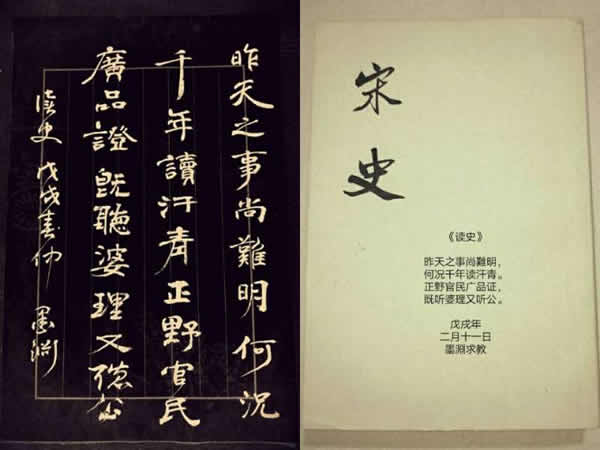 昨天之事尚難明何況
千年讀汗青正野官民
廣品證既聽婆理又聽公
讀史 戊戌春仲 墨渊
宋史
《读史》
昨天之事尚難明，
何况千年读汗青。
正野官民广品证，
既听婆理又听公。
戊戌年
二月十一日
墨淵求教